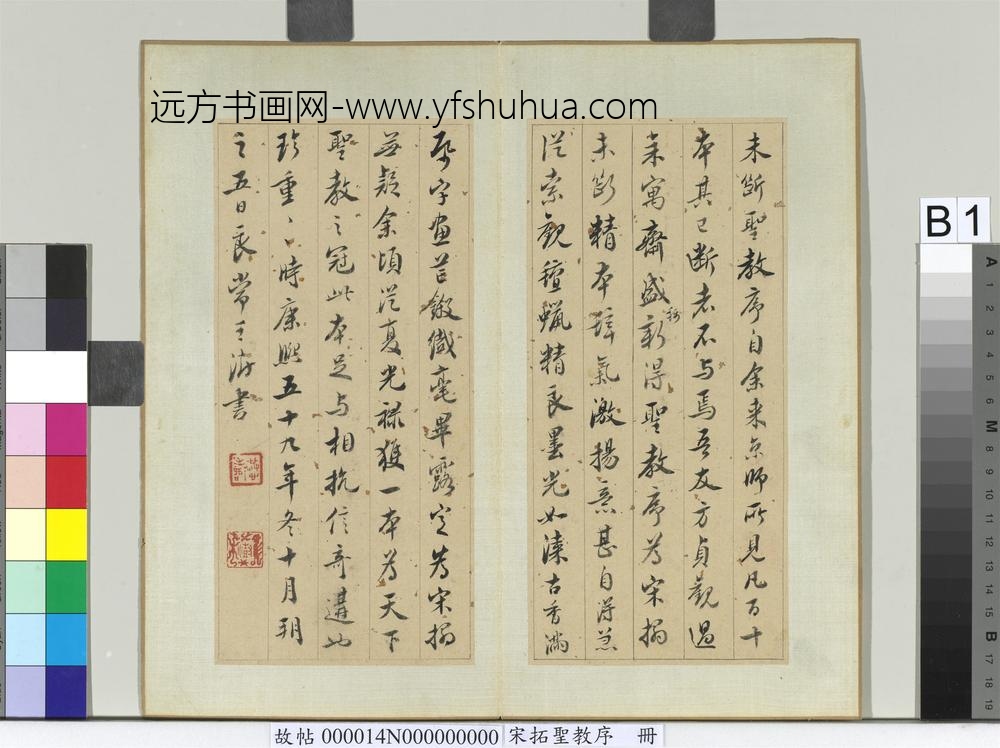 远方书画网-www.yfshuhua.com
未斷聖教序自余来京師所見凡百十
本其已断者不与焉吾友方貞觀過
余寓齋盛称新得聖教序為宋搨
未斷精本璋氣激揚意甚自得急
從索觀氊蠟精良墨光如漆古香滿
帋字畫芒鎩纖毫畢露定為宋搨
無疑余頃從夏光禄獲一本為天下
聖教之冠此本足与相抗信奇遘也
珍重、時康熙五十九年冬十月朔
之五日良常王澍書
B 1
A 1 2 3 4 5 6 M 8 9 10 11 12 13 14 15 B 17 18 19
故帖 000014N000000000 宋拓聖教序 冊